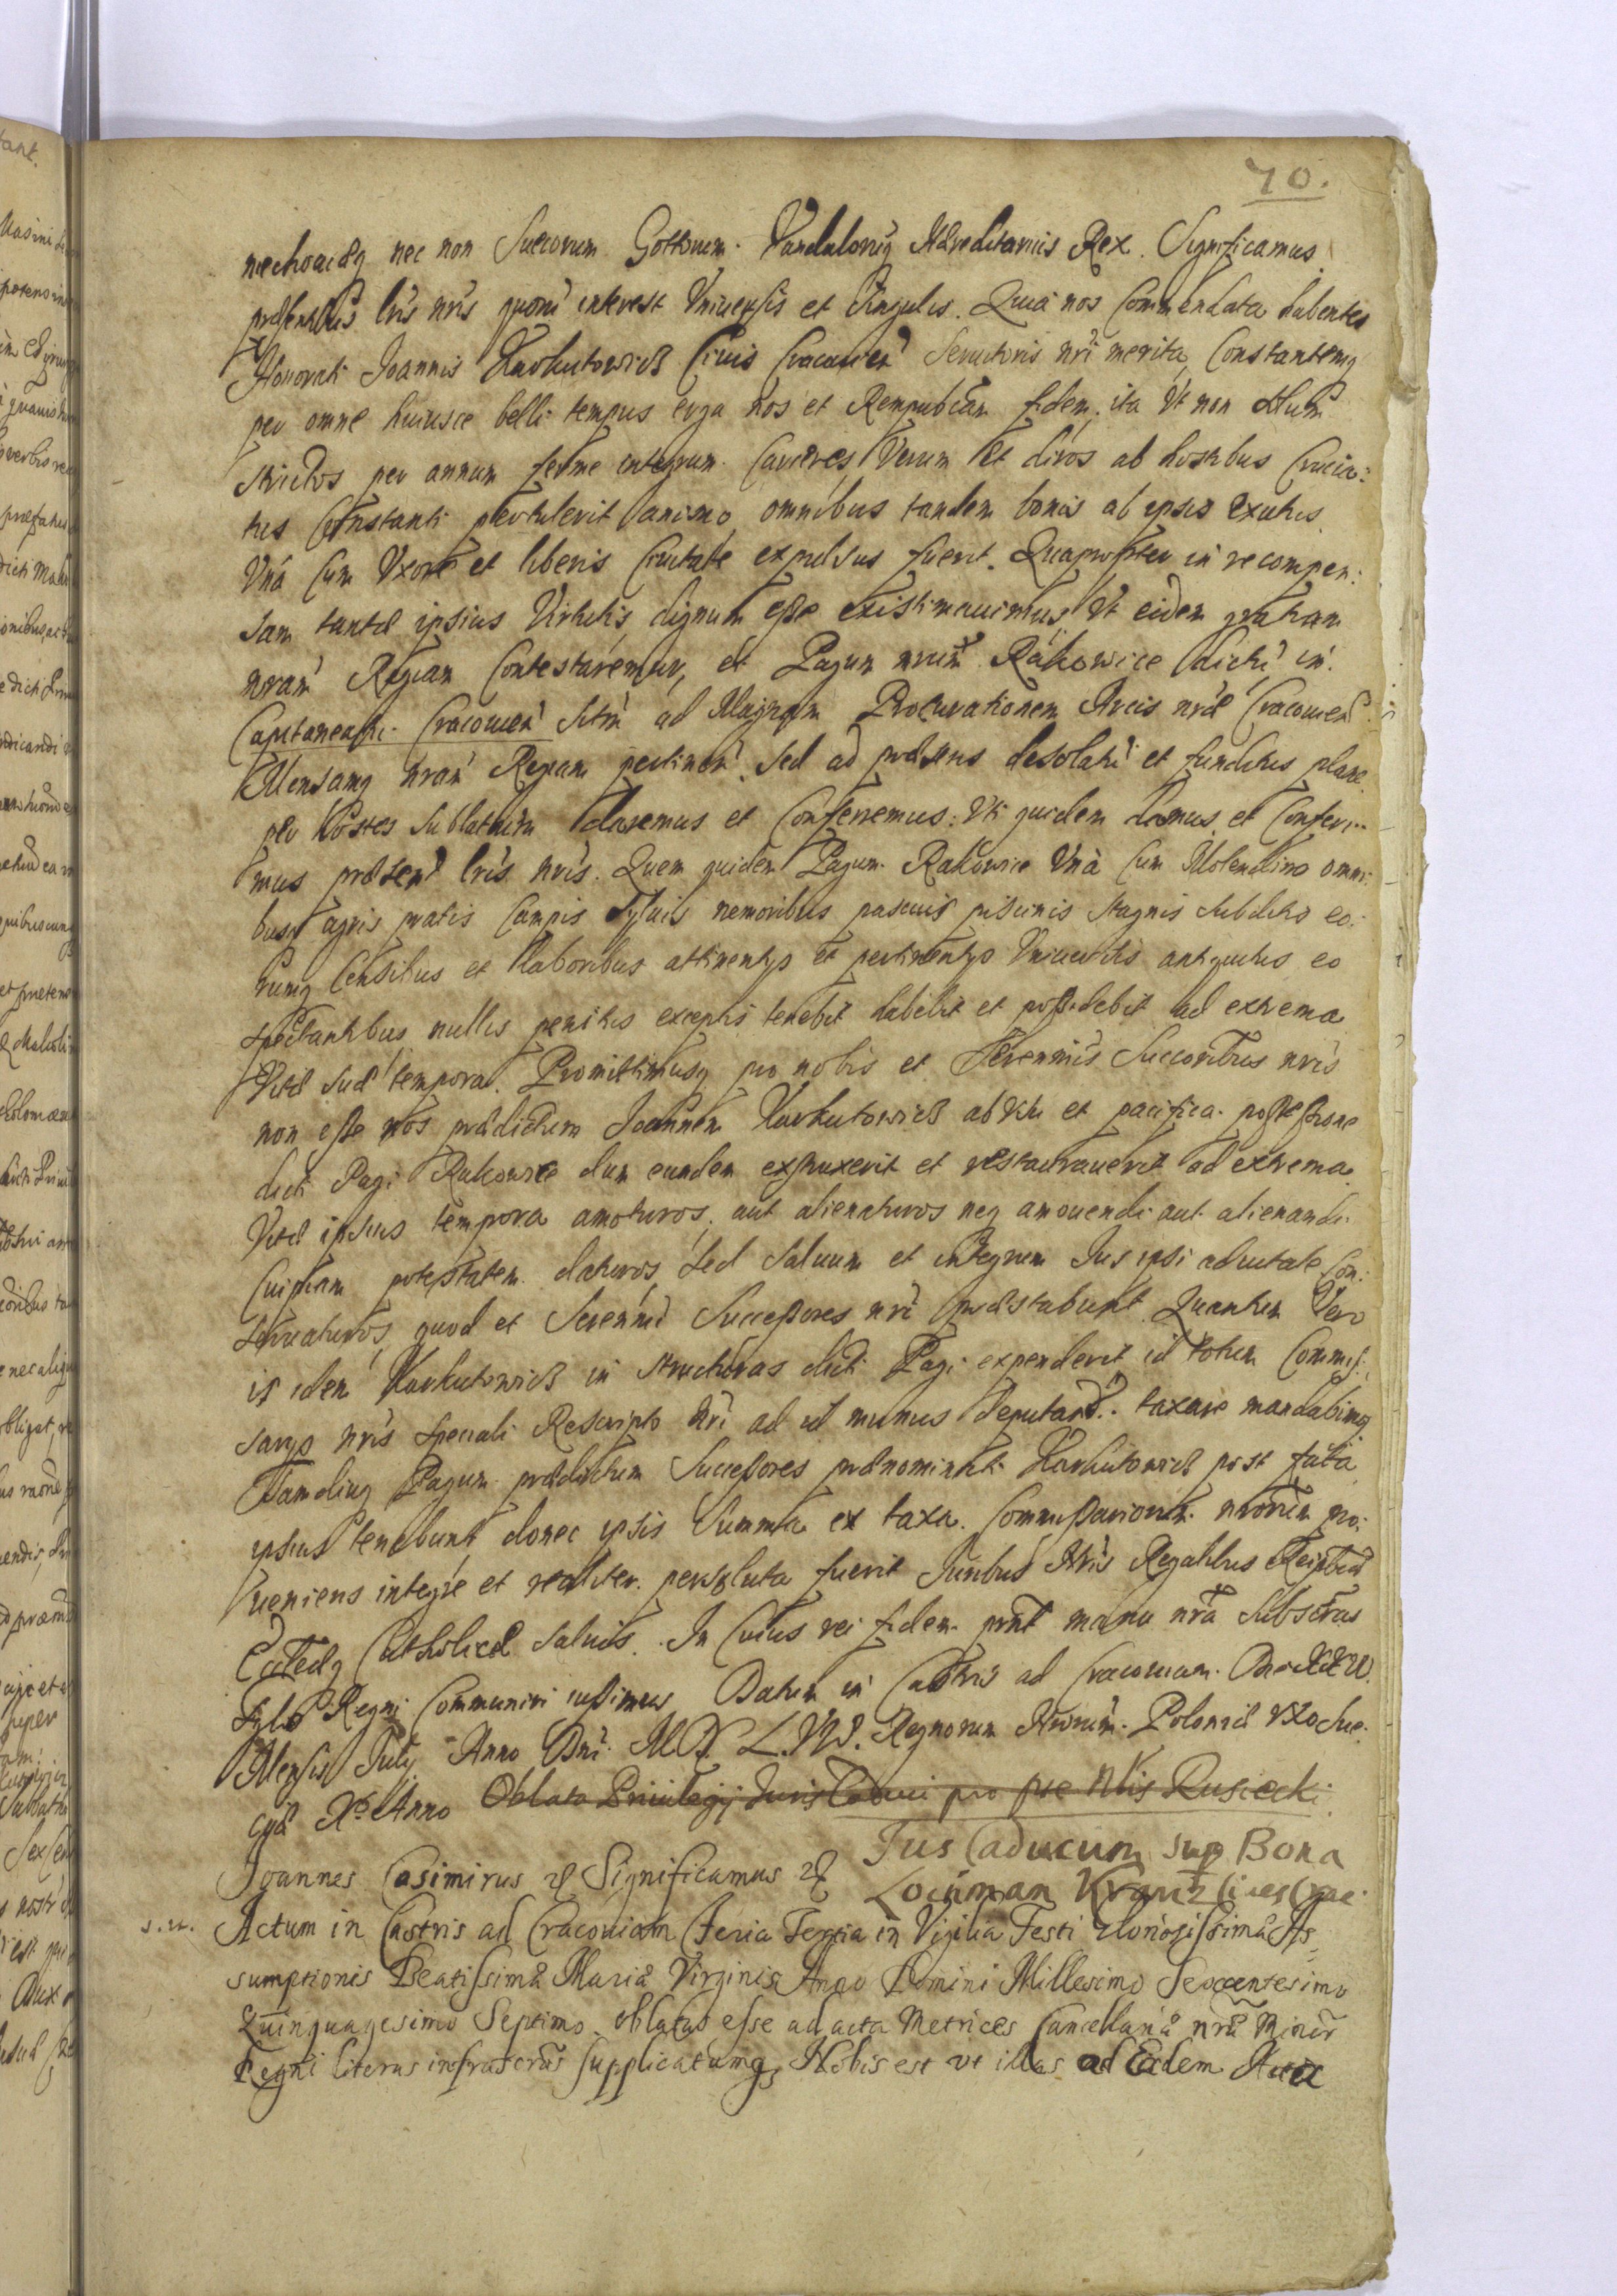 70.
niechouiaeq nec non Suecorum Gottorum Vandalorūq Hæreditarius Rex. Significamus
præsentibus lrīs nrīs quorū interest Vniuersis et singulis. Quia nos Commendata habentes
Honorati Joannis Karkutowicz Ciuis Cracouien Seruitoris nrī merita, Constantemq
per omne huiusce belli tempus erga nos et Rempubcām fidem, ita Vt non solum
strictos per annum ferme integrum Carceres, Verum et diros ab hostibus Crucia:
tus Constanti pertulerit animo, omnibus tandem bonis ab ipsis exutus
Vnà Cum Vxore et liberis Ciuitate expulsus fuerit. Quapropter in recompen:
sam tantæ ipsius Virtutis dignum esse existimauimus Vt eidem gratiam
nrām Regiam Contestaremur, et Pagum nrum Rakowice dictū in
Capitaneatu Cracouien sitm ad Magnam Procurationem Arcis nræ Cracouien
Mensamq nrām Regiam pertinen. Sed ad præsens desolatū et funditus plane
per hostes sublatum daremus et Conferremus: Vti quidem damus et Conferi..
mus præsen lrīs nrīs. Quem quidem Pagum Rakowice Vnà Cum Molendino omni:
busq agris pratis Campis Syluis nemoribus pascuis piscinis stagnis subditis eo:
rumq Censibus et laboribus attinentijs et pertinentijs Vniuersis antiquitus eo
spectantibus nullis penitus exceptis tenebit habebit et possidebit ad extrema
Vitæ suæ tempora. Promittimusq pro nobis et Serenmīs Succoribus nrīs
non esse nos prædictum Joannem Karkutowicz ab Vsu et pacifica possessione
dicti Pagi Rakowice dum eundem extruxerit et restaurauerit ad extrema
Vitæ ipsius tempora amoturos, aut alienaturos neq amouendi aut alienandi
Cuipiam potestatem daturos, sed saluum et integrum Jus ipsi aduitale Con:
seruaturos, quod et Serenmī Successores nrī præstabunt. Quantum Vero
is idem Karkutowicz in structuras dicti Pagi expenderit id totum Commis:
sarijs nrīs speciali Rescripto nrī ad id munus deputand.. taxare mandabimq
Tamdiuq Pagum prædictum Successores prænominati Karkutowicz post fata
ipsius tenebunt donec ipsis Summa ex taxa Commissariorum nrorum pro:
ueniens integre et realiter persoluta fuerit Juribus Nrīs Regalibus Reipbcæ
Eccleæq Catholicæ saluis. In Cuius rei fidem prnt manu nrā Subscras
Sigillo Regni Communiri iussimus Datum in Castris ad Cracouiam
Mensis Julij Anno Dnī M.D. L.VII. Regnorum Nrorum Poloniæ
ciæ Xº Anno Oblata Priuilegij Juris Caduci pro pte Nlis Rusiecki
Jus Caducum sup Bona
Joannes Casimirus &c Significamus &c Locuman Kranz Ciues Crac
Actum in Castris ad Cracouiam Feria Tertia in Vigilia Festi Gloriosissimæ As
sumptionis Beatissimæ Mariæ Virginis Anno Domini Millesimo Sexcentesimo
Quinquagesimo Septimo. oblatas esse ad acta Metrices Cancellariæ nræ Minor
Regni literas infrascras supplicatumq Nobis est vt illas ad Eadem Acta